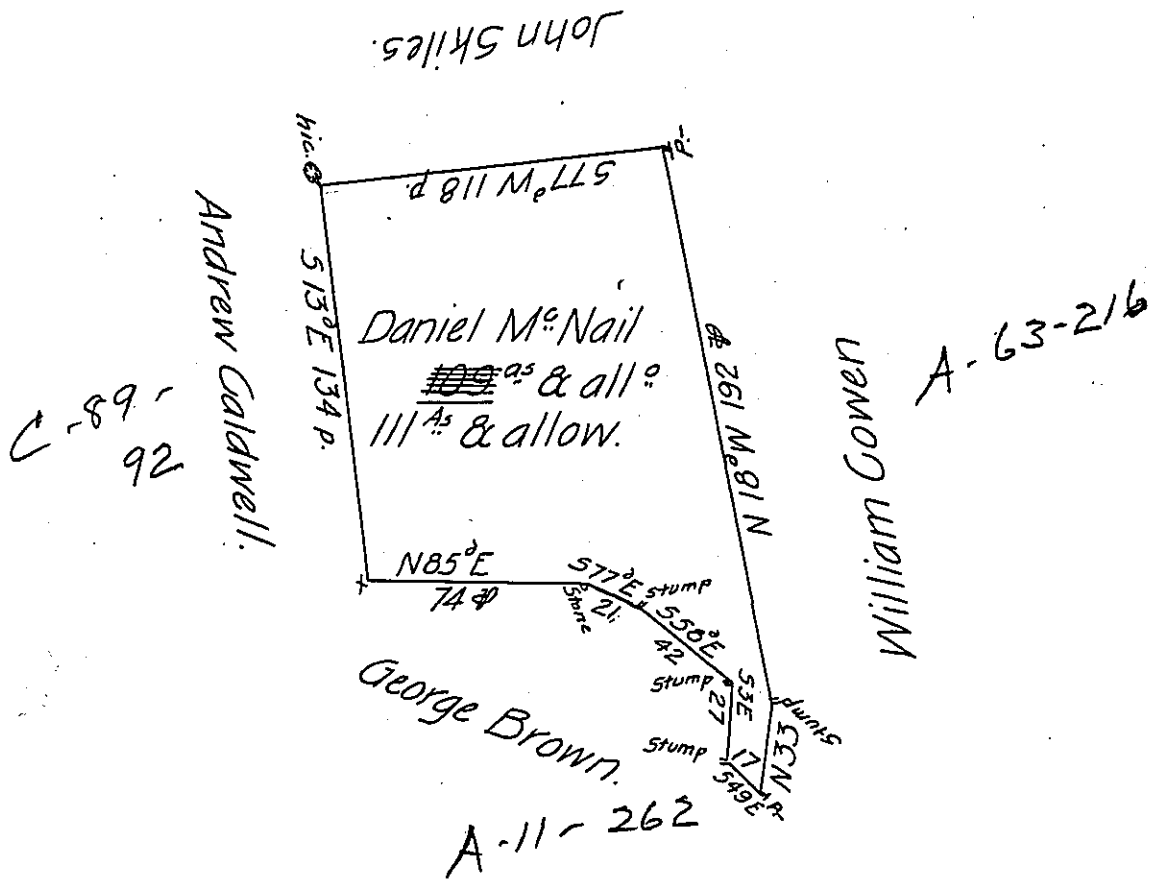 John Skiles.
hic.
p.
S77°W 118 p.
Andrew Caldwell.
S 13°E 134 p.
Daniel Mc Nail
109 as & allo
111 As & allow.
N 18°W 192
William Cowen
A-63-216
C-89-
92
N85°E
74 p
Stone
S77°E
21
Stump
S58°E
42
Stump
S3E
27
Stump
N33
Stump
17
S49E
P.
George Brown.
A-11-262